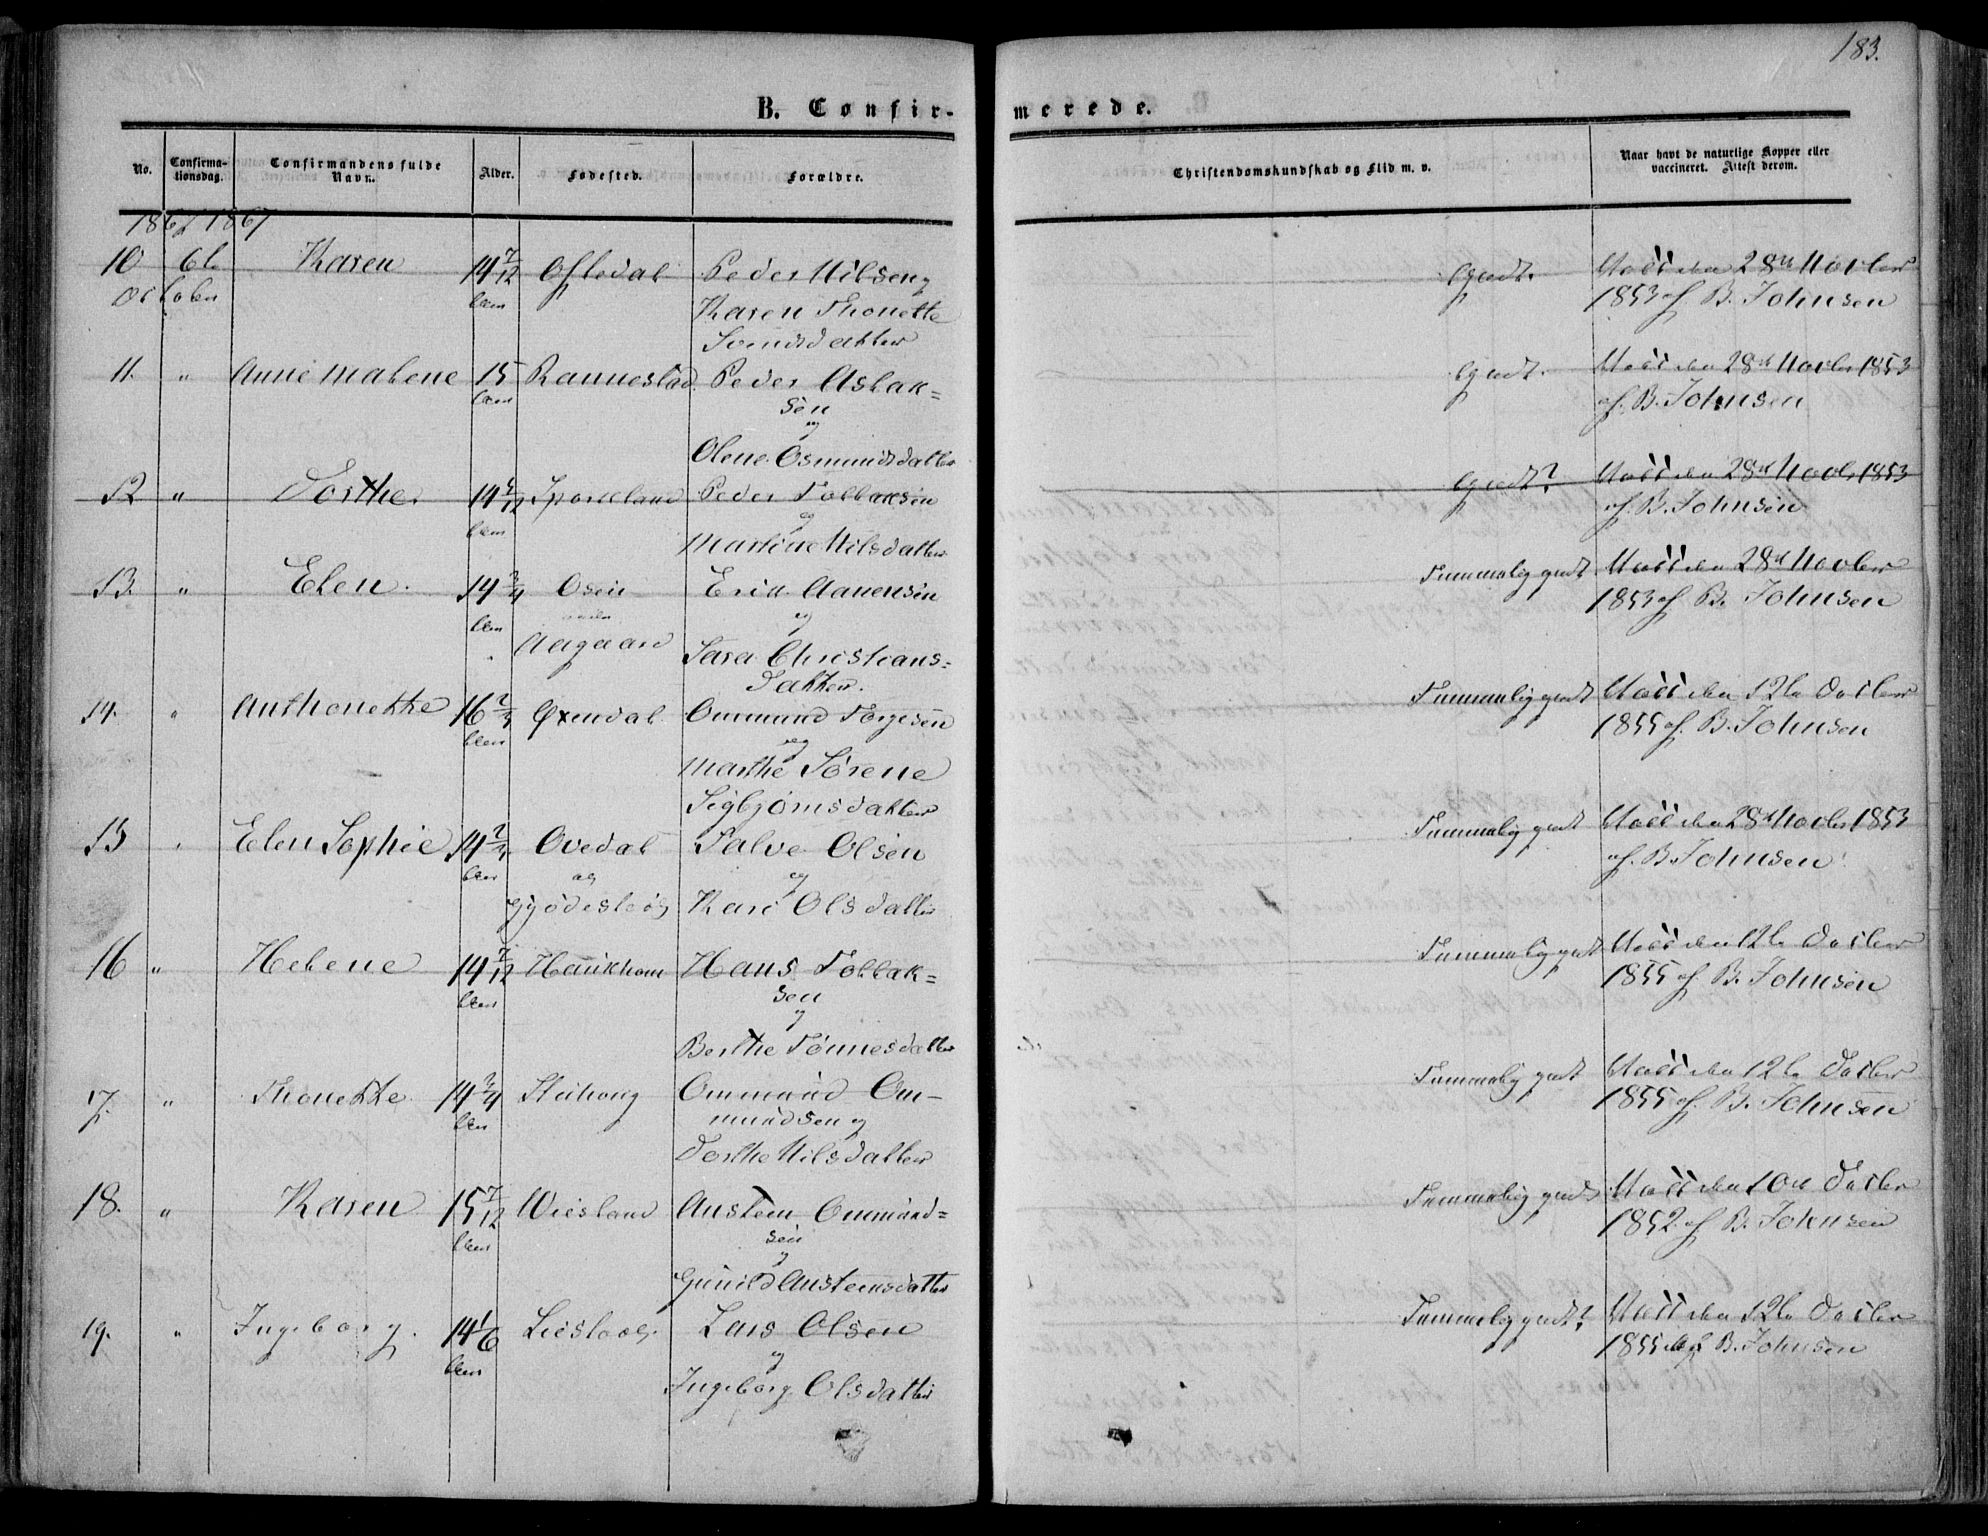 183.
B. Confir-
merede.
No.
Confirma-
tionsdag.
Confirmandens fulde
Navn.
Alder.
Fødested.
Forældre.
Christendomskundskab og Flid m. v.
Naar havt de naturlige Kopper eller
vaccineret. Attest derom.
1867 1867
10 6te Karen 14 7/12 Peder Nilsen og
October Karen Thonette
Svendsdatter
godt.
den 28de Novber
1853 af B. Johnsen
11. " Anne Malene 15 Rannestad Peder Aslak=
sen
og
Olene Osmundsdatter
godt.
den 28de Novber 1853
af B. Johnsen
12 " Dorthe. 14 Sporkland Peder Tollaksen
og
Martine Nilsdatter
godt?
den 28de Novbr 1853
af B. Johnsen
13. " Elen. 14 3/4 Osen Erik Aanensen
og
Aagaard Sara Christians=
Datter.
Temmelig godt
den 28de Novber
1853 af B. Johnsen
14. " Anthonette 16 2/3 Øxendal Ommund Torgesen
og
Marthe Sørene
Sigbjørnsdatter
Temmelig godt
den 12te Decber
1855 af B. Johnsen
15 " Elen Sophie 14 2/3 Ovedal Salve Olsen
og og
Gjødeslög Kari Olsdatter
Temmelig godt
den 28de Novber 1853
af B. Johnsen
16 " Helene 14 7/12 Haukhom Hans Tollak=
sen
og
Berthe Tønnesdatter
Temmelig godt
den 12te Decber
1855 af B. Johnsen
17. " Thonette 14 3/4 Ommund Om-
mundsen og
Dorthe Nilsdatter
Temmelig godt
den 12te Decber
1855 af B. Johnsen
18. " Karen 15 7/12 Wiesland Austen Ommund=
sen
og
Gunild Austensdatter
Temmelig godt
den 10de Decber
1852 af B. Johnsen
19. " Ingeborg. 14 1/6 Lars Olsen
og
Ingeborg Olsdatter
Temmelig godt?
den 12te Decber
1855 af B. Johnsen